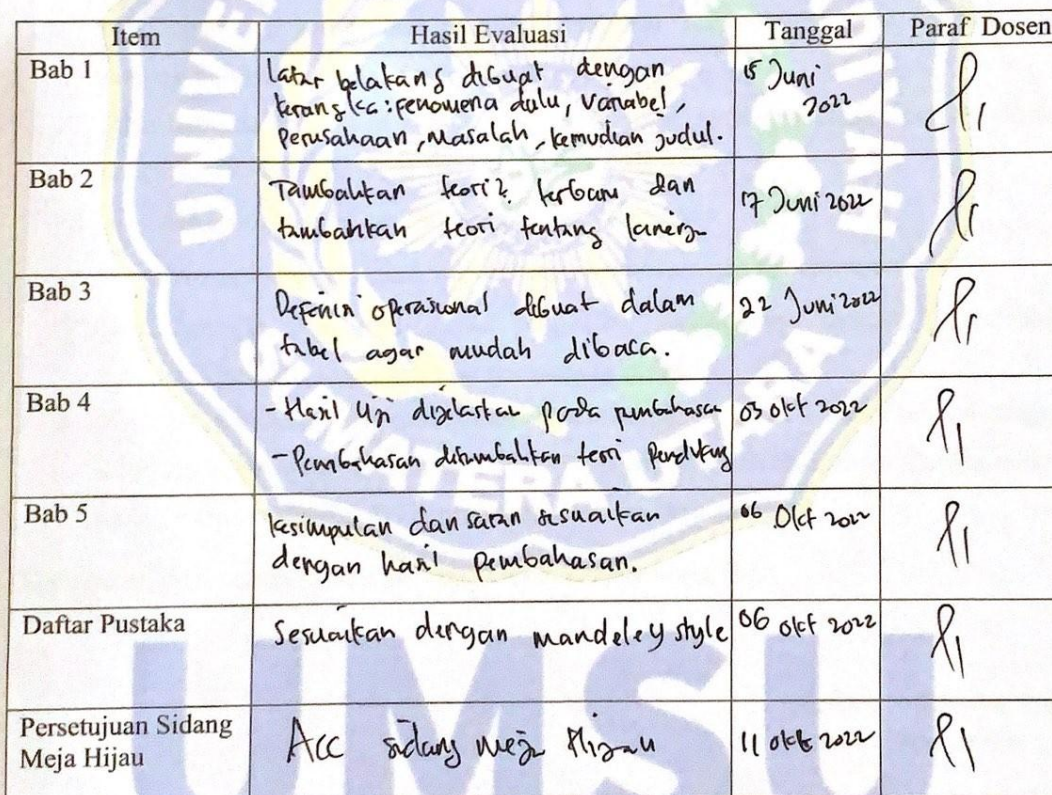 Item Hasil Evaluasi Tanggal Paraf Dosen
Bab 1
latar belakang dibuat dengan
kerangka: fenomena dulu, Variabel,
Perusahaan, Masalah, kemudian judul.
15 Juni
2022
Bab 2
Tambahkan teori2 terbaru dan
tambahkan teori tentang kinerja
17 Juni 2022
Bab 3
Definisi operasional dibuat dalam
tabel agar mudah dibaca.
22 Juni 2022
Bab 4
- Hasil Uji dijelaskan pada pembahasan
- Pembahasan ditambahkan teori Pendukung
03 Okt 2022
Bab 5
kesimpulan dan saran sesuaikan
dengan hasil pembahasan.
06 Okt 2022
Daftar Pustaka
Sesuaikan dengan mandeley style
06 Okt 2022
Persetujuan Sidang
Meja Hijau
Acc sidang meja Hijau
11 Okt 2022
SUMATERA UTARA
UMSU